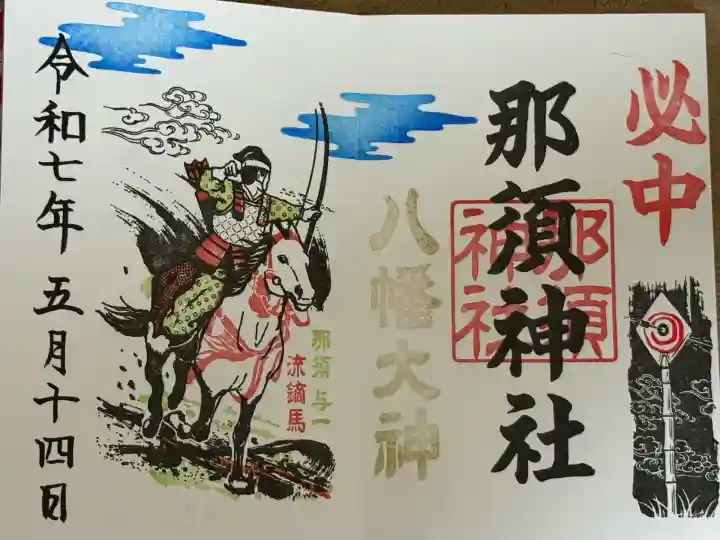 必中
那須神社
那須神社
八幡大神
那須与一
流鏑馬
令和七年五月十四日